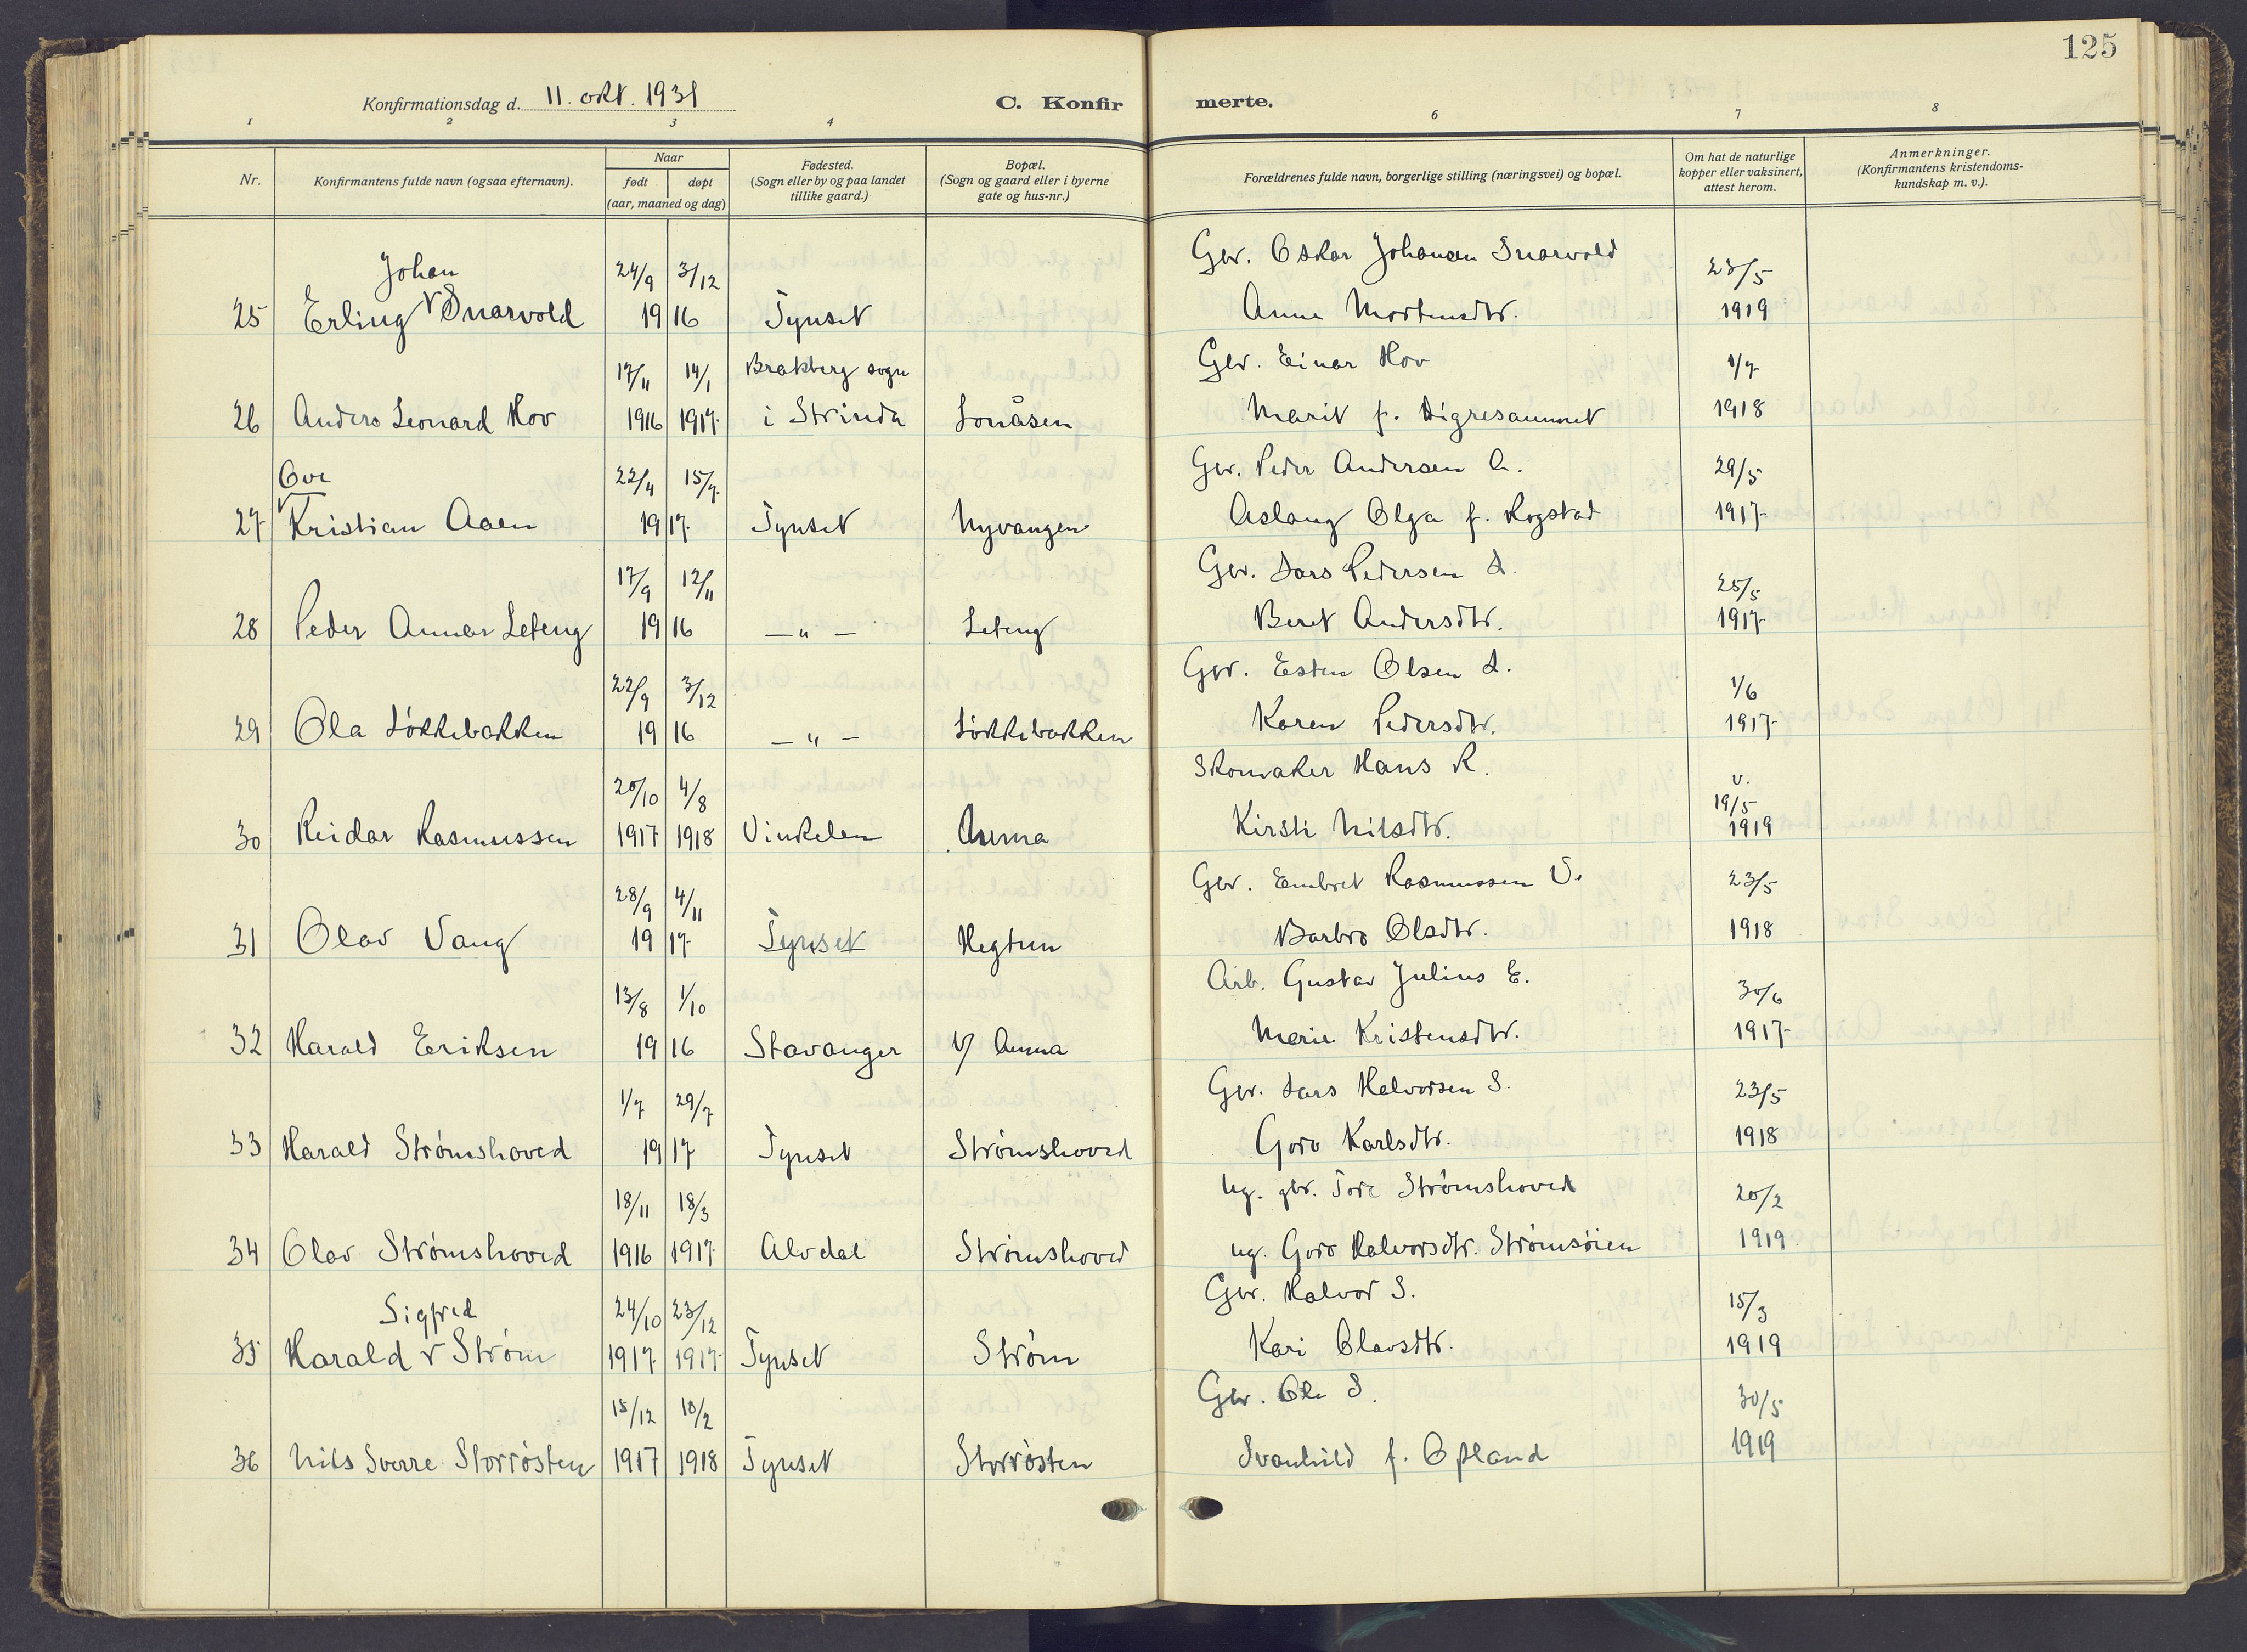 125
Konfirmationsdag d. 11. okt. 1931
C. Konfirmerte.
1 2 3 4 6 7 8
Nr.
Konfirmantens fulde navn (ogsaa efternavn).
Naar
født døpt
(aar, maaned og dag)
Fødested.
(Sogn eller by og paa landet
tillike gaard.)
Bopæl.
(Sogn og gaard eller i byerne
gate og hus-nr.)
Forældrenes fulde navn, borgerlige stilling (næringsvei) og bopæl.
Om hat de naturlige
kopper eller vaksinert,
attest herom.
Anmerkninger.
(Konfirmantens kristendoms-
kundskap m. v.).
Johan 24/9 3/12 Gbr. Oskar Johansen Snarvold 23/5
25 Erling v Snarvold 19 16 Tynset Anne Mortensdtr. 1919
17/11 14/1 Bratsberg sogn Gbr. Einar Hov 1/7
26 Anders Leonard Hov 1916 1917 i Strinda Lonåsen Marit f. Digresaunet 1918
Ove 22/4 15/7 Gbr. Peder Andersen A. 29/5
27 Kristian Aaen 19 17 Tynset Nyvangen Aslaug Olga f. Rogstad 1917
17/9 12/11 Gbr. Lars Pedersen L. 25/5
28 Peder Annar Leteng 19 16 — " — Leteng Beret Andersdtr. 1917
22/9 3/12 Gbr. Esten Olsen L. 1/6
29 Ola Løkkebakken 19 16 — " — Løkkebakken Karen Pedersdtr. 1917
20/10 4/8 Skomaker Hans R. v. 19/5
30 Reidar Rasmussen 1917 1918 Vinkelen Auma Kirsti Nilsdtr. 1919
28/9 4/11 Gbr. Embret Rasmussen V. 23/5
31 Olav Vang 19 17 Tynset Hegtun Barbro Olsdtr. 1918
13/8 1/10 Arb. Gustav Julius E. 30/6
32 Harald Eriksen 19 16 Stavanger v/ Auma Marie Kristensdtr. 1917
1/7 29/7 Gbr. Lars Halvorsen S. 23/5
33 Harald Strømshoved 19 17 Tynset Strømshoved Goro Karlsdtr. 1918
18/11 18/3 Ug. gbr. Tore Strømshoved 20/2
34 Olav Strømshoved 1916 1917 Alvdal Strømshoved ug. Goro Halvorsdtr. Strømsøien 1919
Sigfred 24/10 23/12 Gbr. Halvor S. 15/3
35 Harald v Strøm 1917 1917 Tynset Strøm Kari Olavsdtr. 1919
15/12 10/2 Gbr. Ole S. 30/5
36 Nils Sverre Storrøsten 1917 1918 Tynset Storrøsten Svanhild f. Opland 1919